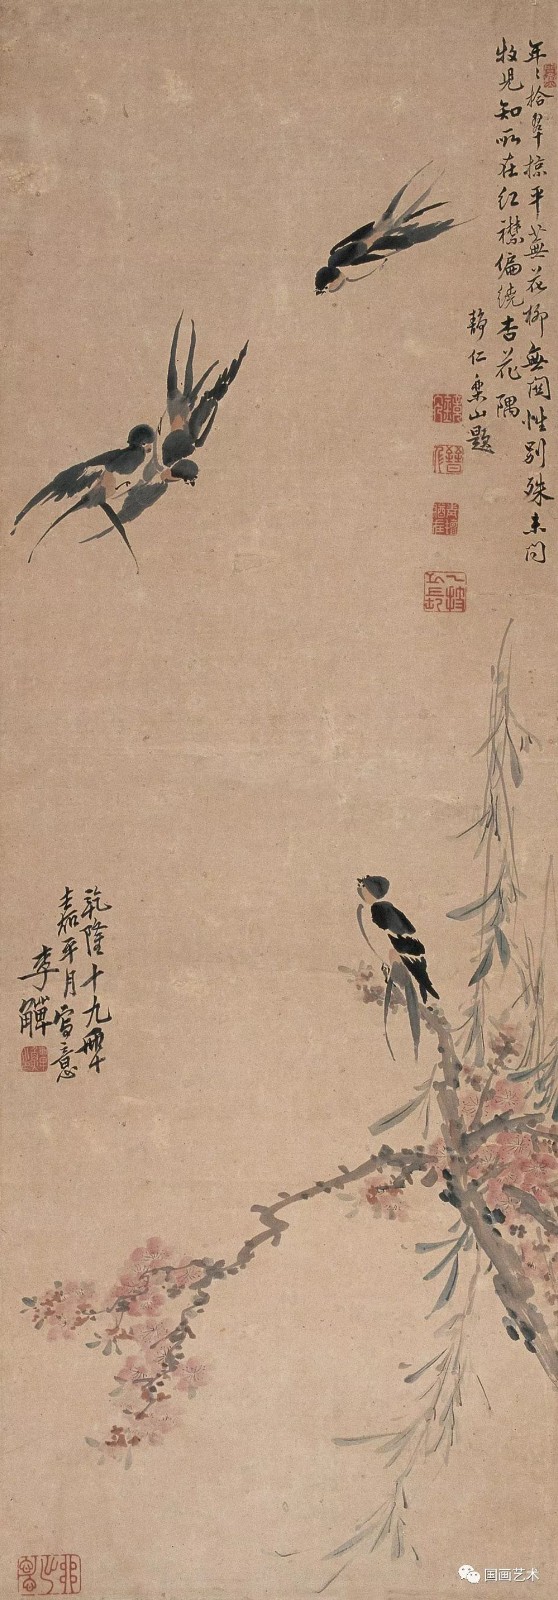 年〻拾翠掠平蕪花柳無關性別殊未问
牧児知所在红襟偏繞杏花隅
静仁樂山題
乾隆十九年
嘉平月寫意
李觶
国画艺术